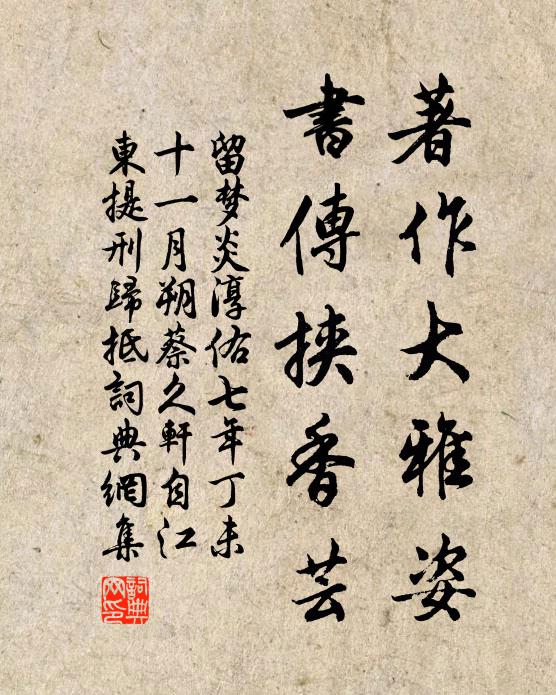 著作大雅姿
書傳挾香芸
留梦炎淳佑七年丁未
十一月朔蔡久軒自江
東提刑歸抵詞典網集
詞典网印